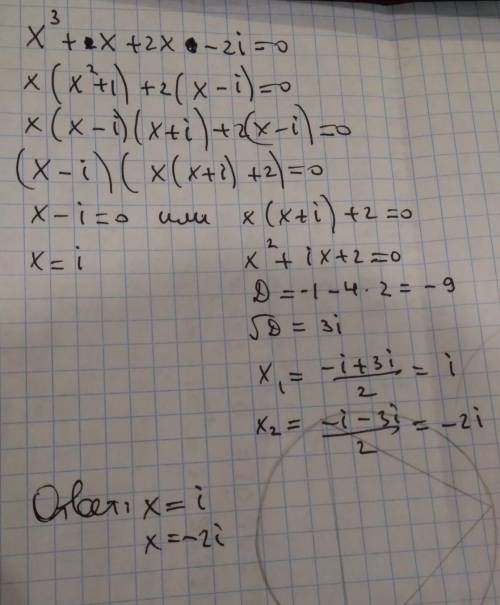 x³ + x + 2x - 2i = 0
x(x²+1) + 2(x-i) = 0
x(x-i)(x+i) + 2(x-i) = 0
(x-i)(x(x+i)+2) = 0
x-i=0 или x(x+i)+2=0
x=i x²+ix+2=0
D = -1-4·2 = -9
√D = 3i
x₁ = (-i+3i)/2 = i
x₂ = (-i-3i)/2 = -2i
Ответ: x = i
x = -2i